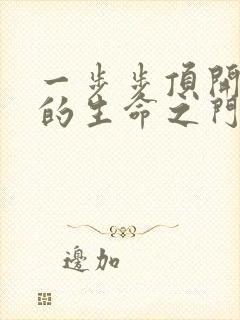 一步步頂開
的生命之門
邊加